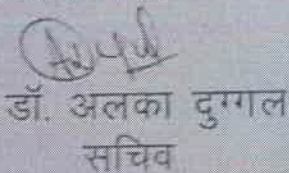 डॉ. अलका दुग्गल
सचिव